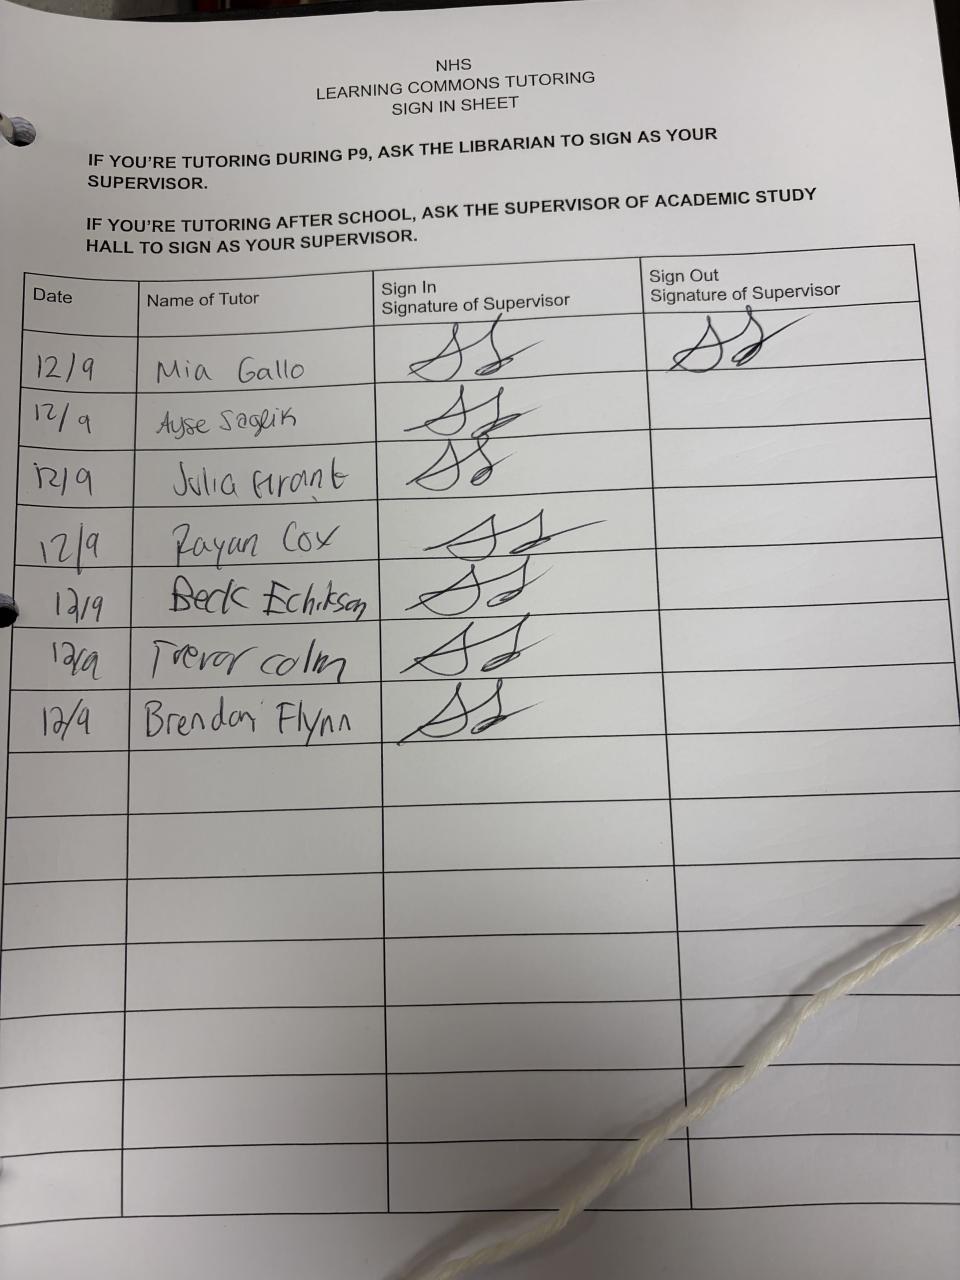 NHS
LEARNING COMMONS TUTORING
SIGN IN SHEET
IF YOU'RE TUTORING DURING P9, ASK THE LIBRARIAN TO SIGN AS YOUR
SUPERVISOR.
IF YOU'RE TUTORING AFTER SCHOOL, ASK THE SUPERVISOR OF ACADEMIC STUDY
HALL TO SIGN AS YOUR SUPERVISOR.
Date Name of Tutor Sign In Signature of Supervisor Sign Out Signature of Supervisor
12/9 Mia Gallo
12/9 Ayse Saglik
12/9 Julia Grant
12/9 Rayan Cox
12/9 Beck Echikson
12/9 Trevor Colm
12/9 Brendan Flynn